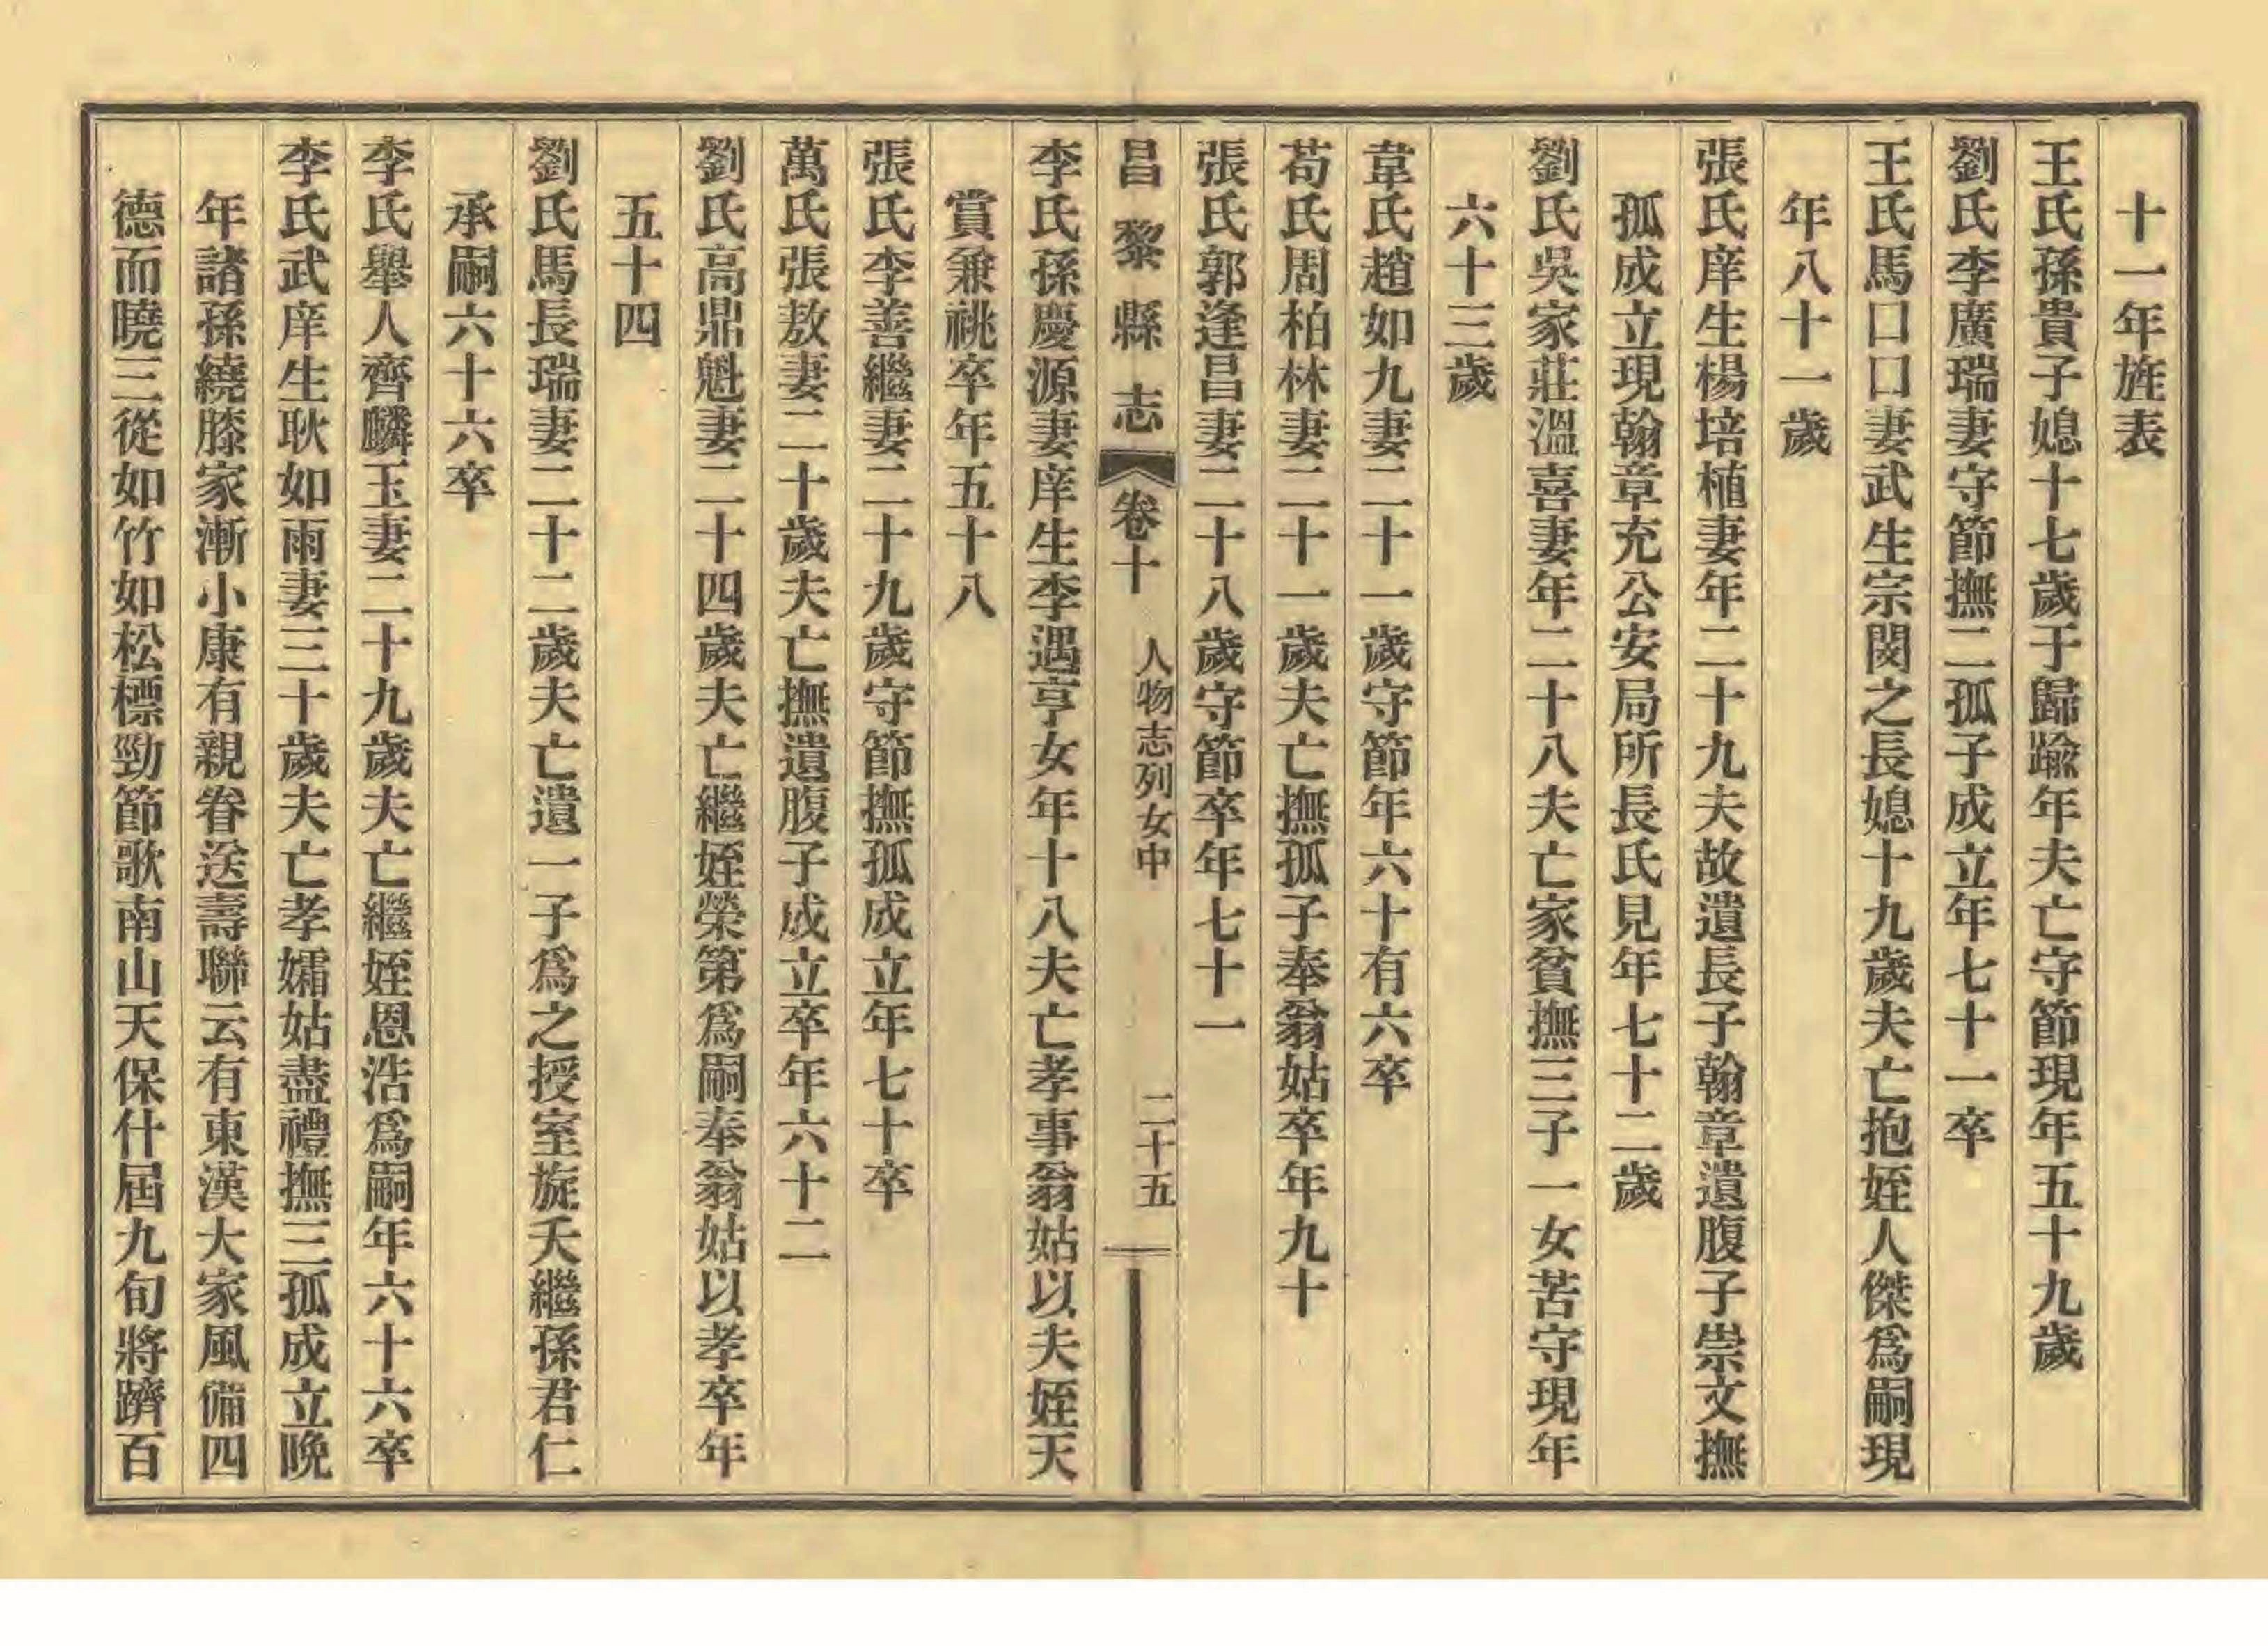 十一年旌表
王氏孫貴子媳十七歲于歸踰年夫亡守節現年五十九歲
劉氏李廣瑞妻守節撫二孤子成立年七十一卒
王氏馬口口妻武生宗閔之長媳十九歲夫亡抱姪人傑爲嗣現
年八十一歲
張氏庠生楊培植妻年二十九夫故遺長子翰章遺腹子崇文撫
孤成立現翰章充公安局所長氏見年七十二歲
劉氏吳家莊溫喜妻年二十八夫亡家貧撫三子一女苦守現年
六十三歲
韋氏趙如九妻二十一歲守節年六十有六卒
苟氏周柏林妻二十一歲夫亡撫孤子奉翁姑卒年九十
張氏郭逢昌妻二十八歲守節卒年七十一
昌黎縣志 卷十 人物志列女中 二十五
李氏孫慶源妻庠生李遇亨女年十八夫亡孝事翁姑以夫姪天
賞兼祧卒年五十八
張氏李善繼妻二十九歲守節撫孤成立年七十卒
萬氏張敖妻二十歲夫亡撫遺腹子成立卒年六十二
劉氏高鼎魁妻二十四歲夫亡繼姪榮第爲嗣奉翁姑以孝卒年
五十四
劉氏馬長瑞妻二十二歲夫亡遺一子爲之授室旋夭繼孫君仁
承嗣六十六卒
李氏舉人齊麟玉妻二十九歲夫亡繼姪恩浩爲嗣年六十六卒
李氏武庠生耿如雨妻三十歲夫亡孝孀姑盡禮撫三孤成立晚
年諸孫繞膝家漸小康有親眷送壽聯云有東漢大家風備四
德而曉三從如竹如松標勁節歌南山天保什屆九旬將躋百